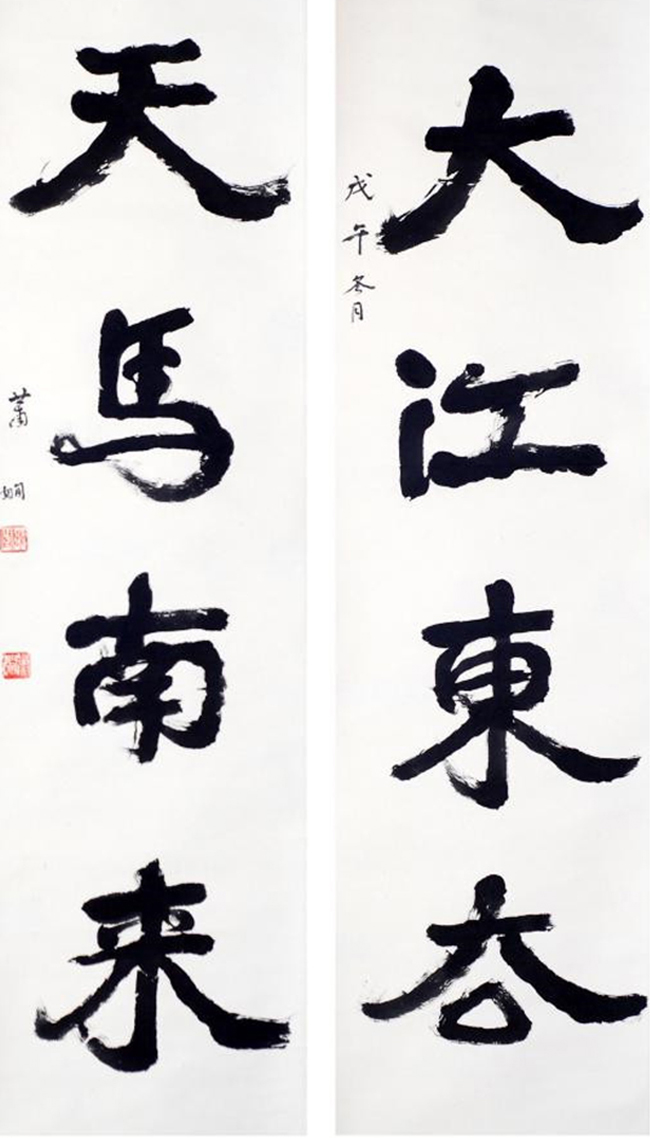 大江東去
戊午冬月
天馬南来
蕭嫻